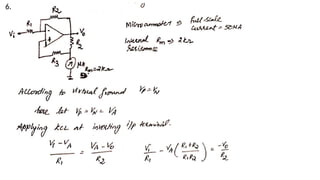 6.
R2
R1
Vi
V0
R2
R3
μA
Rm=2kΩ
Microammeter ⇒ Full-scale
current = 50μA
Internal Rm ⇒ 2kΩ
According to virtual ground Vp=VN
here let Vp = VN = VA
Applying KCL at inverting i/p terminal.
Vi - VA / R1 = VA - V0 / R2
Vi / R1 - VA ( R1+R2 / R1R2 ) = -V0 / R2